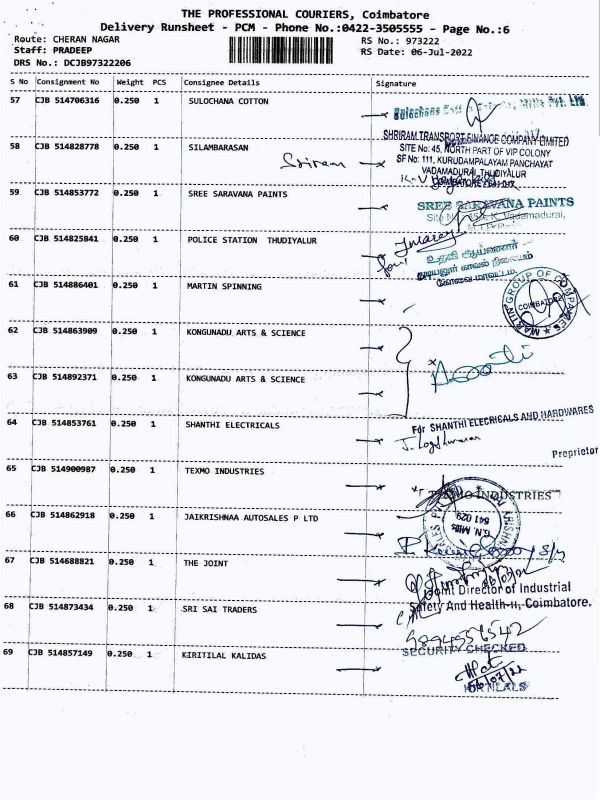 THE PROFESSIONAL COURIERS, Coimbatore
Delivery Runsheet - PCM - Phone No.:0422-3505555 - Page No.:6
Route: CHERAN NAGAR RS No.: 973222
Staff: PRADEEP RS Date: 06-Jul-2022
DRS No.: DCJB97322206
S No Consignment No Weight PCS Consignee Details Signature
57 CJB 514706316 0.250 1 SULOCHANA COTTON
Mills Pvt. Ltd.
SHRIRAM TRANSPORT FINANCE COMPANY LIMITED
58 CJB 514828778 0.250 1 SILAMBARASAN Sriram SITE No: 45, NORTH PART OF VIP COLONY
SF No: 111, KURUDAMPALAYAM PANCHAYAT
VADAMADURAI, THUDIYALUR
59 CJB 514853772 0.250 1 SREE SARAVANA PAINTS
SREE SARAVANA PAINTS
Vadamadurai,
60 CJB 514825841 0.250 1 POLICE STATION THUDIYALUR
உதவி ஆய்வாளர்
காவல் நிலையம்
கோவை மாவட்டம்.
61 CJB 514886401 0.250 1 MARTIN SPINNING
MARTIN GROUP OF COMPANIES
COIMBATORE
62 CJB 514863909 0.250 1 KONGUNADU ARTS & SCIENCE
63 CJB 514892371 0.250 1 KONGUNADU ARTS & SCIENCE
64 CJB 514853761 0.250 1 SHANTHI ELECTRICALS
For SHANTHI ELECRICALS AND HARDWARES
Proprietor
65 CJB 514900987 0.250 1 TEXMO INDUSTRIES
TEXMO INDUSTRIES
66 CJB 514862918 0.250 1 JAIKRISHNAA AUTOSALES P LTD
G.N Mills
641 029
67 CJB 514688821 0.250 1 THE JOINT
Joint Director of Industrial
68 CJB 514873434 0.250 1 SRI SAI TRADERS
Safety And Health-II, Coimbatore.
9894956542
SECURITY CHECKED
69 CJB 514857149 0.250 1 KIRITILAL KALIDAS
06/07/22